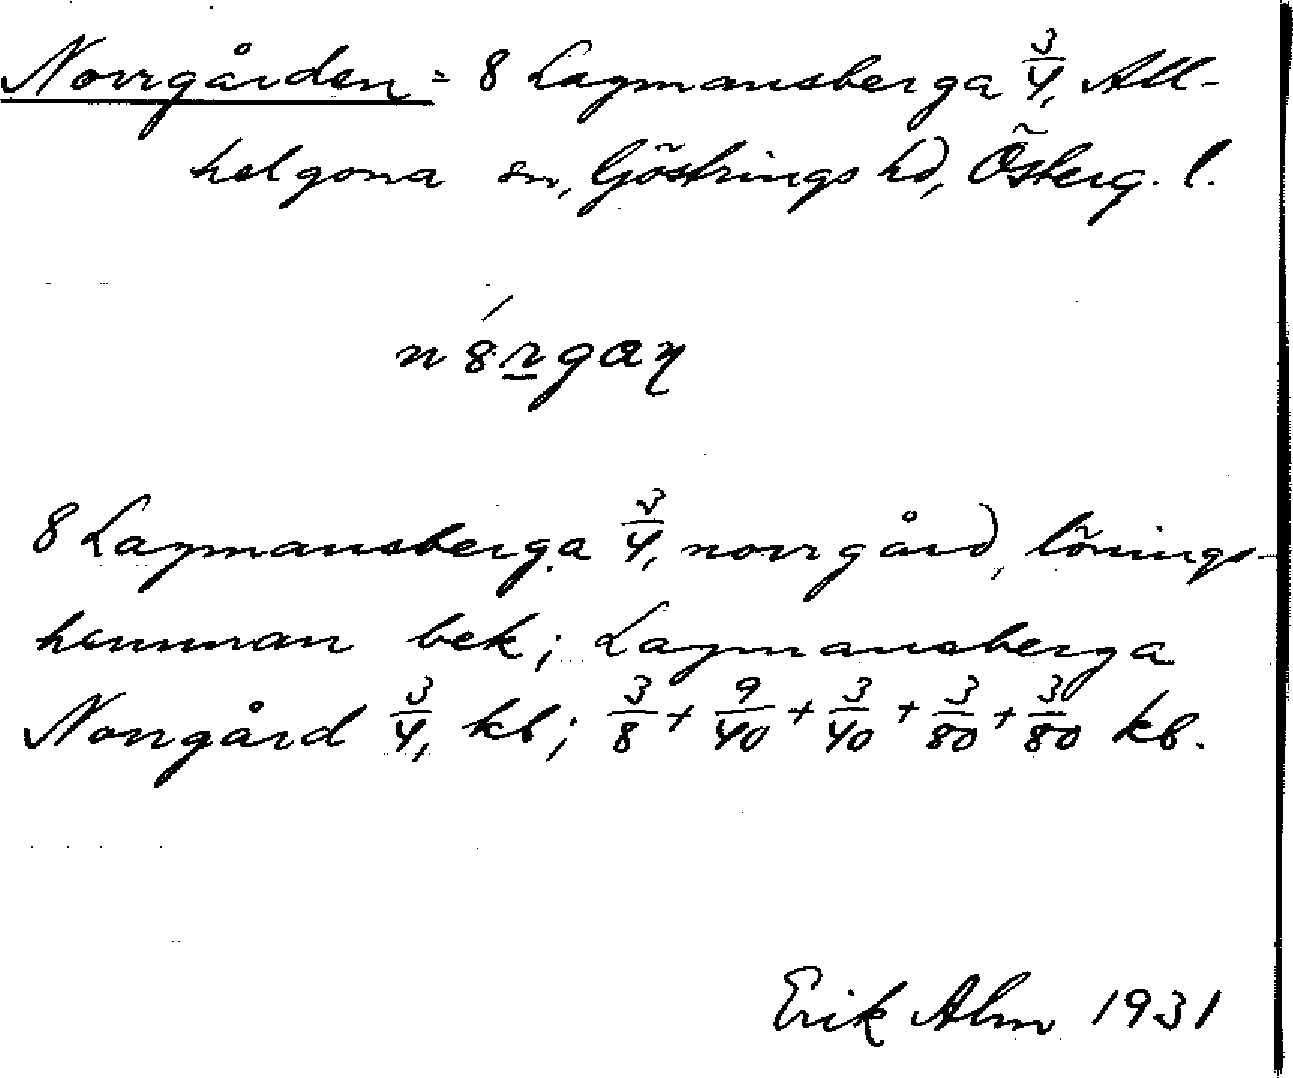 Norrgården = 8 Lagmansberga 3/4, All-
helgona sn, Göstrings hd, Österg. l.
n8́rgaŋ
8 Lagmansberga 3/4, norrgård, lönings-
hemman bek; Lagmansberga
Norrgård 3/4, kb; 3/8 + 9/40 + 3/40 + 3/80 + 3/80 kb.
Erik Alm 1931